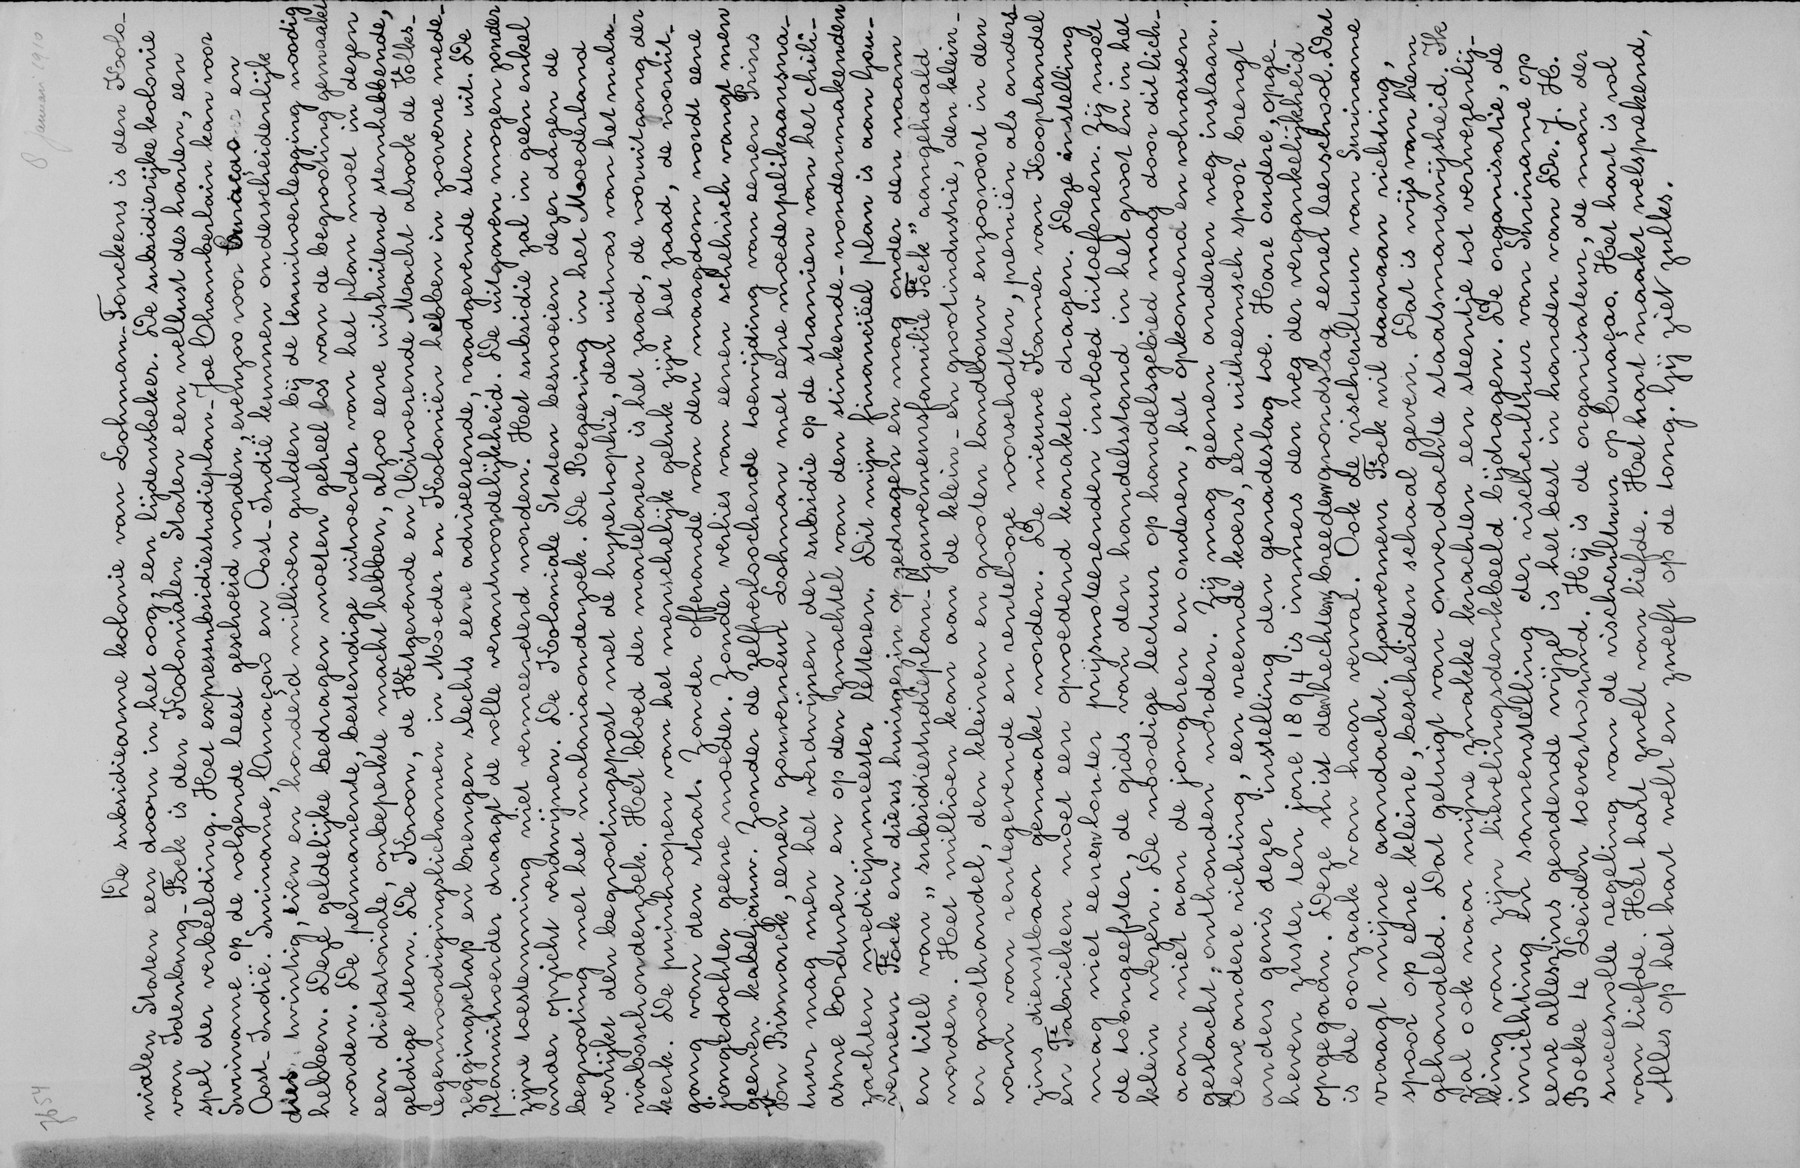 8 Januari 1910
7654
De subsidiearme kolonie van Lohman-Fonckens is den Kolo-
nialen Staten een doorn in het oog, een lijdensbeker. De subsidierijke kolonie
van Idenburg-Fock is den Kolonialen Staten een wellust des harten, een
spel der verbeelding. Het expressubsidiestudieplan-Joe Chamberlain kan voor
Suriname op de volgende leest geschoeid worden, evenzoo voor Curacao en
Oost-Indië. Suriname, Curaçao en Oost-Indië kunnen onderscheidenlijk
dies twintig, tien en honderd millioen gulden bij de tenuitvoerlegging noodig
hebben. Deze geldelijke bedragen moeten geheel los van de begrooting gemaakt
worden. De permanente, bestendige uitvoerder van het plan moet in dezen
een dictatoriale, onbeperkte macht hebben, alzoo eene uitsluitend stemhebbende,
geldige stem. De Kroon, de Wetgevende en Uitvoerende Macht alsook de Volks-
tegenwoordigingslichamen in Moeder en Koloniën hebben in zooverre mede-
zeggingschap en brengen slechts eene adviseerende, raadgevende stem uit. De
planuitvoerder draagt de volle verantwoordelijkheid. De uitgaven mogen zonder
zijne toestemming niet vermeerderd worden. Het subsidie zal in geen enkel
ander opzicht verdwijnen. De Koloniale Staten besnoeien dezer dagen de
begrooting met het malariaonderzoek. De Regeering in het Moederland
verrijkt den begrootingspost met de hypertrophie, den uitwas van het mala-
riaboschonderzoek. Het bloed der martelaren is het zaad, de vooruitgang der
kerk. De puinhoopen van het menschelijk geluk zijn het zaad, de vooruit-
gang van den staat. Zonder offerande van den maagdom wordt eene
jongedochter geene moeder. Zonder verlies van eenen schelvisch vangt men
geenen kabeljauw. Zonder de zelfverloochende toewijding van eenen Prins
von Bismarck, eenen gouverneur Lohman met eene moederpelikaansna-
tuur mag men het verdwijnen der subsidie op de stramien van het chili-
asme borduren en op den zwachtel van den stinkende-wondenmakenden
zachten medicijnmeester letteren. Dit mijn financiëel plan is aan Gou-
verneur Fock en diens huisgezin opgedragen en mag onder den naam
en titel van „subsidiestudieplan-Gouverneursfamilie Fock" aangehaald
worden. Het millioen kan aan de klein- en grootindustrie, den klein-
en groothandel, den kleinen en grooten landbouw enzoovoort in den
vorm van rentegevende en rentelooze voorschotten, premiën als anders-
zins dienstbaar gemaakt worden. De nieuwe Kamer van Koophandel
en Fabrieken moet een opvoedend karakter dragen. Deze instelling
mag niet eenen louter prijsnoteerenden invloed uitoefenen. Zij moet
de toongeefster, de gids van den handelsstand in het groot en in het
klein wezen. De noodige lectuur op handelsgebied mag door dit lich-
aam niet aan de jongeren en ouderen, het opkomend en volwassen
geslacht, onthouden worden. Zij mag geenen anderen weg inslaan.
Eene andere richting, een vreemde koers, een uitheemsch spoor brengt
anders gewis dezer instelling den genadeslag toe. Hare oudere, opge-
heven zuster ten jare 1894 is immers den weg der vergankelijkheid
opgegaan. Deze mist den hechten breeden grondslag eener leerschool. Dat
is de oorzaak van haar verval. Ook de vischcultuur van Suriname
vraagt mijne aandacht. Gouverneur Fock wil daaraan richting,
spoor op eene kleine, bescheiden schaal geven. Dat is wijs van hem
gehandeld. Dat getuigt van onverdachte staatsmanswijsheid. Ik
zal ook naar mijne zwakke krachten een steentje tot verwezenlij-
king van zijn lievelingsdenkbeeld bijdragen. De organisatie, de
inrichting en samenstelling der vischcultuur van Suriname op
eene alleszins geordende wijze is het best in handen van Dr. J. H.
Boeke te Leiden toevertrouwd. Hij is de organisateur, de man der
succesvolle regeling van de vischcultuur op Curaçao. Het hart is vol
van liefde. Het hart zwelt van liefde. Het hart maakt welsprekend,
Alles op het hart welt en zweeft op de tong. Gij ziet zulks.